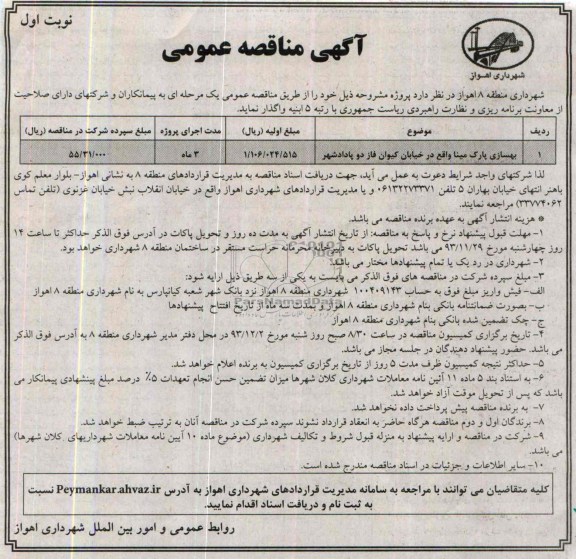 نوبت اول
آگهی مناقصه عمومی
شهرداری اهواز
شهرداری منطقه ۸ اهواز در نظر دارد پروژه مشروحه ذیل خود را از طریق مناقصه عمومی یک مرحله ای به پیمانکاران و شرکتهای دارای صلاحیت
از معاونت برنامه ریزی و نظارت راهبردی ریاست جمهوری با رتبه ۵ ابنیه واگذار نماید.
ردیف موضوع مبلغ اولیه (ریال) مدت اجرای پروژه مبلغ سپرده شرکت در مناقصه (ریال)
۱ بهسازی پارک مینا واقع در خیابان کیوان فاز دو پادادشهر ۱/۱۰۶/۰۲۴/۵۱۵ ۳ ماه ۵۵/۳۱/۰۰۰
لذا شرکتهای واجد شرایط دعوت به عمل می آید، جهت دریافت اسناد مناقصه به مدیریت قراردادهای منطقه ۸ به نشانی اهواز- بلوار معلم کوی
باهنر انتهای خیابان بهاران ۵ تلفن ۰۶۱۳۲۲۷۳۳۷۱ و یا مدیریت قراردادهای شهرداری اهواز واقع در خیابان انقلاب نبش خیابان غزنوی (تلفن تماس
۳۳۷۷۴۰۶۲) مراجعه نمایند.
هزینه انتشار آگهی به عهده برنده مناقصه می باشد.
۱- مهلت قبول پیشنهاد نرخ و پاسخ به مناقصه: از تاریخ انتشار آگهی به مدت ده روز و تحویل پاکات در آدرس فوق الذکر حداکثر تا ساعت ۱۴
روز چهارشنبه مورخ ۹۳/۱۱/۲۹ می باشد تحویل پاکات به دبیرخانه محرمانه حراست مستقر در ساختمان منطقه ۸ شهرداری خواهد بود.
۲- شهرداری در رد یک یا تمام پیشنهادها مختار می باشد.
۳- مبلغ سپرده شرکت در مناقصه های فوق الذکر می بایست به یکی از سه طریق ذیل ارایه شود:
الف- فیش واریز مبلغ فوق به حساب ۱۰۰۴۰۹۱۴۳ شهرداری منطقه ۸ اهواز نزد بانک شهر شعبه کیانپارس به نام شهرداری منطقه ۸ اهواز
ب- بصورت ضمانتنامه بانکی بنام شهرداری منطقه ۸ اهواز و بمدت سه ماه از تاریخ افتتاح پیشنهادها
ج- چک تضمین شده بانکی بنام شهرداری منطقه ۸ اهواز
۴- تاریخ برگزاری کمیسیون مناقصه در ساعت ۸/۳۰ صبح روز شنبه مورخ ۹۳/۱۲/۲ در محل دفتر مدیر شهرداری منطقه ۸ به آدرس فوق الذکر
می باشد. حضور پیشنهاد دهندگان در جلسه مجاز می باشد.
۵- حداکثر نتیجه کمیسیون ظرف مدت ۵ روز از تاریخ برگزاری کمیسیون به برنده اعلام خواهد شد.
۶- به استناد بند ۵ ماده ۱۱ آئین نامه معاملات شهرداری کلان شهرها میزان تضمین حسن انجام تعهدات ۵٪ درصد مبلغ پیشنهادی پیمانکار می
باشد که پس از تحویل موقت آزاد خواهد شد.
۷- به برنده مناقصه پیش پرداخت داده نخواهد شد.
۸- برندگان اول و دوم مناقصه هرگاه حاضر به انعقاد قرارداد نشوند سپرده شرکت در مناقصه آنان به ترتیب ضبط خواهد شد.
۹- شرکت در مناقصه و ارایه پیشنهاد به منزله قبول شروط و تکالیف شهرداری (موضوع ماده ۱۰ آیین نامه معاملات شهرداریهای کلان شهرها)
می باشد.
۱۰- سایر اطلاعات و جزئیات در اسناد مناقصه مندرج شده است.
کلیه متقاضیان می توانند با مراجعه به سامانه مدیریت قراردادهای شهرداری اهواز به آدرس Peymankar.ahvaz.ir نسبت
به ثبت نام و دریافت اسناد اقدام نمایید.
روابط عمومی و امور بین الملل شهرداری اهواز